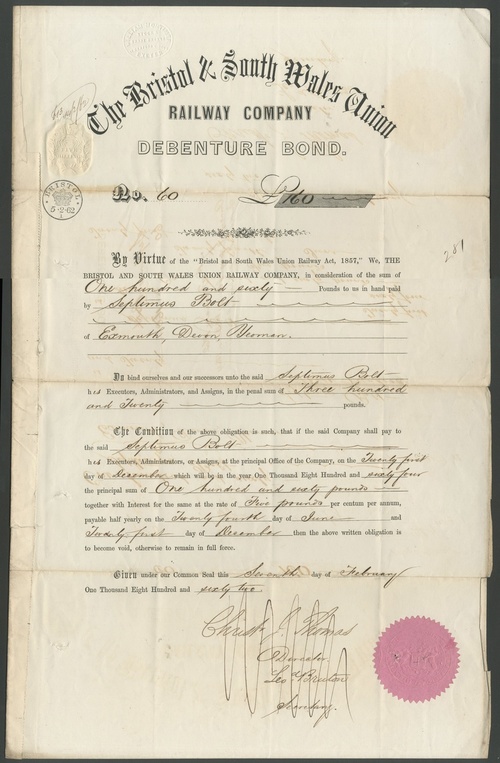 The Bristol & South Wales Union
RAILWAY COMPANY
DEBENTURE BOND.
BRISTOL
5·2·62
No. 60 £160
281
By Virtue of the "Bristol and South Wales Union Railway Act, 1857," We, THE
BRISTOL AND SOUTH WALES UNION RAILWAY COMPANY, in consideration of the sum of
One hundred and sixty Pounds to us in hand paid
by Septimus Bolt
of Exmouth, Devon, Yeoman.
Do bind ourselves and our successors unto the said Septimus Bolt
his Executors, Administrators, and Assigns, in the penal sum of Three hundred
and Twenty pounds.
The Condition of the above obligation is such, that if the said Company shall pay to
the said Septimus Bolt
his Executors, Administrators, or Assigns, at the principal Office of the Company, on the Twenty first
day of December which will be in the year One Thousand Eight Hundred and sixty four
the principal sum of One hundred and sixty pounds
together with Interest for the same at the rate of Five pounds per centum per annum,
payable half yearly on the Twenty fourth day of June and
Twenty first day of December then the above written obligation is
to become void, otherwise to remain in full force.
Given under our Common Seal this Seventh day of February
One Thousand Eight Hundred and sixty two.
Christr J. Thomas
Director
Leo Bruton
Secretary.